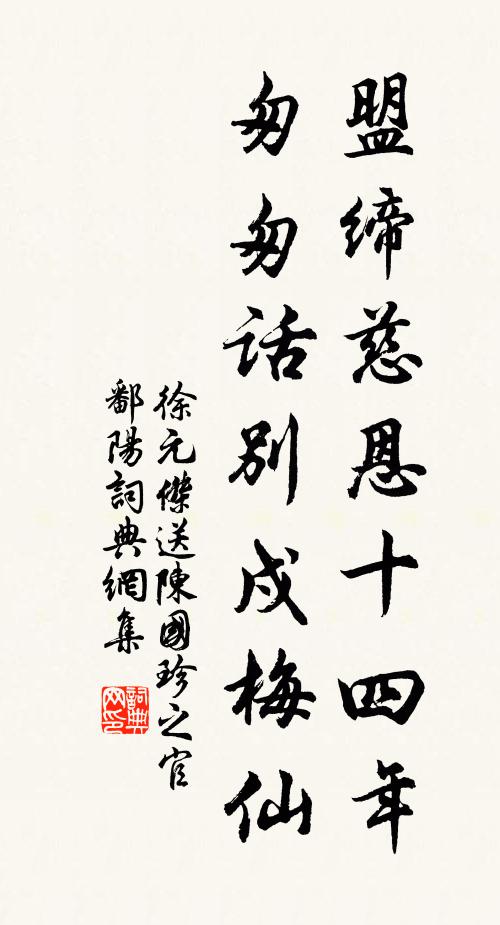 盟締慈恩十四年
匆匆話別戍梅仙
徐元傑送陳國珍之官
鄱陽詞典網集
詞典网印